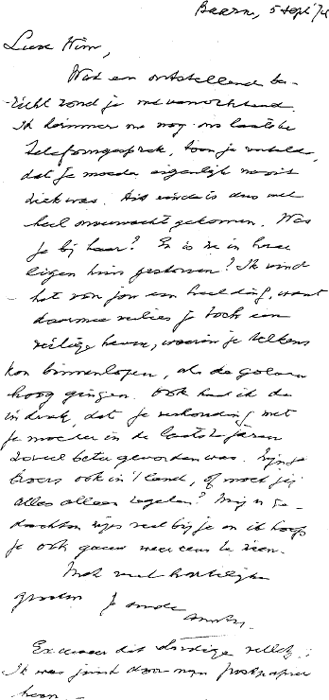 Baarn, 5 sept '74
Lieve Wim,
Wat een ontstellend be-
richt zond je me vanochtend.
Ik herinner me nog ons laatste
telefoongesprek, toen je vertelde,
dat je moeder eigenlijk nooit
ziek was. Dit einde is dus wel
heel onverwacht gekomen. Was
je bij haar? En is ze in haar
eigen huis gestorven? Ik vind
het voor jou een heel ding, want
daarmee verlies je toch een
veilige haven, waarin je telkens
kon binnenlopen, als de golven
hoog gingen. Ook had ik de
indruk, dat je verhouding met
je moeder in de laatste jaren
zoveel beter geworden was. Zijn je
broers ook in 't land, of moet jij
alles alleen regelen? Mijn ge-
dachten zijn veel bij je en ik hoop
je ook gauw weer eens te zien.
Met veel hartelijke
groeten je oude
Excuseer dit slordige velletje.
Ik was juist door mijn postpapier
heen.